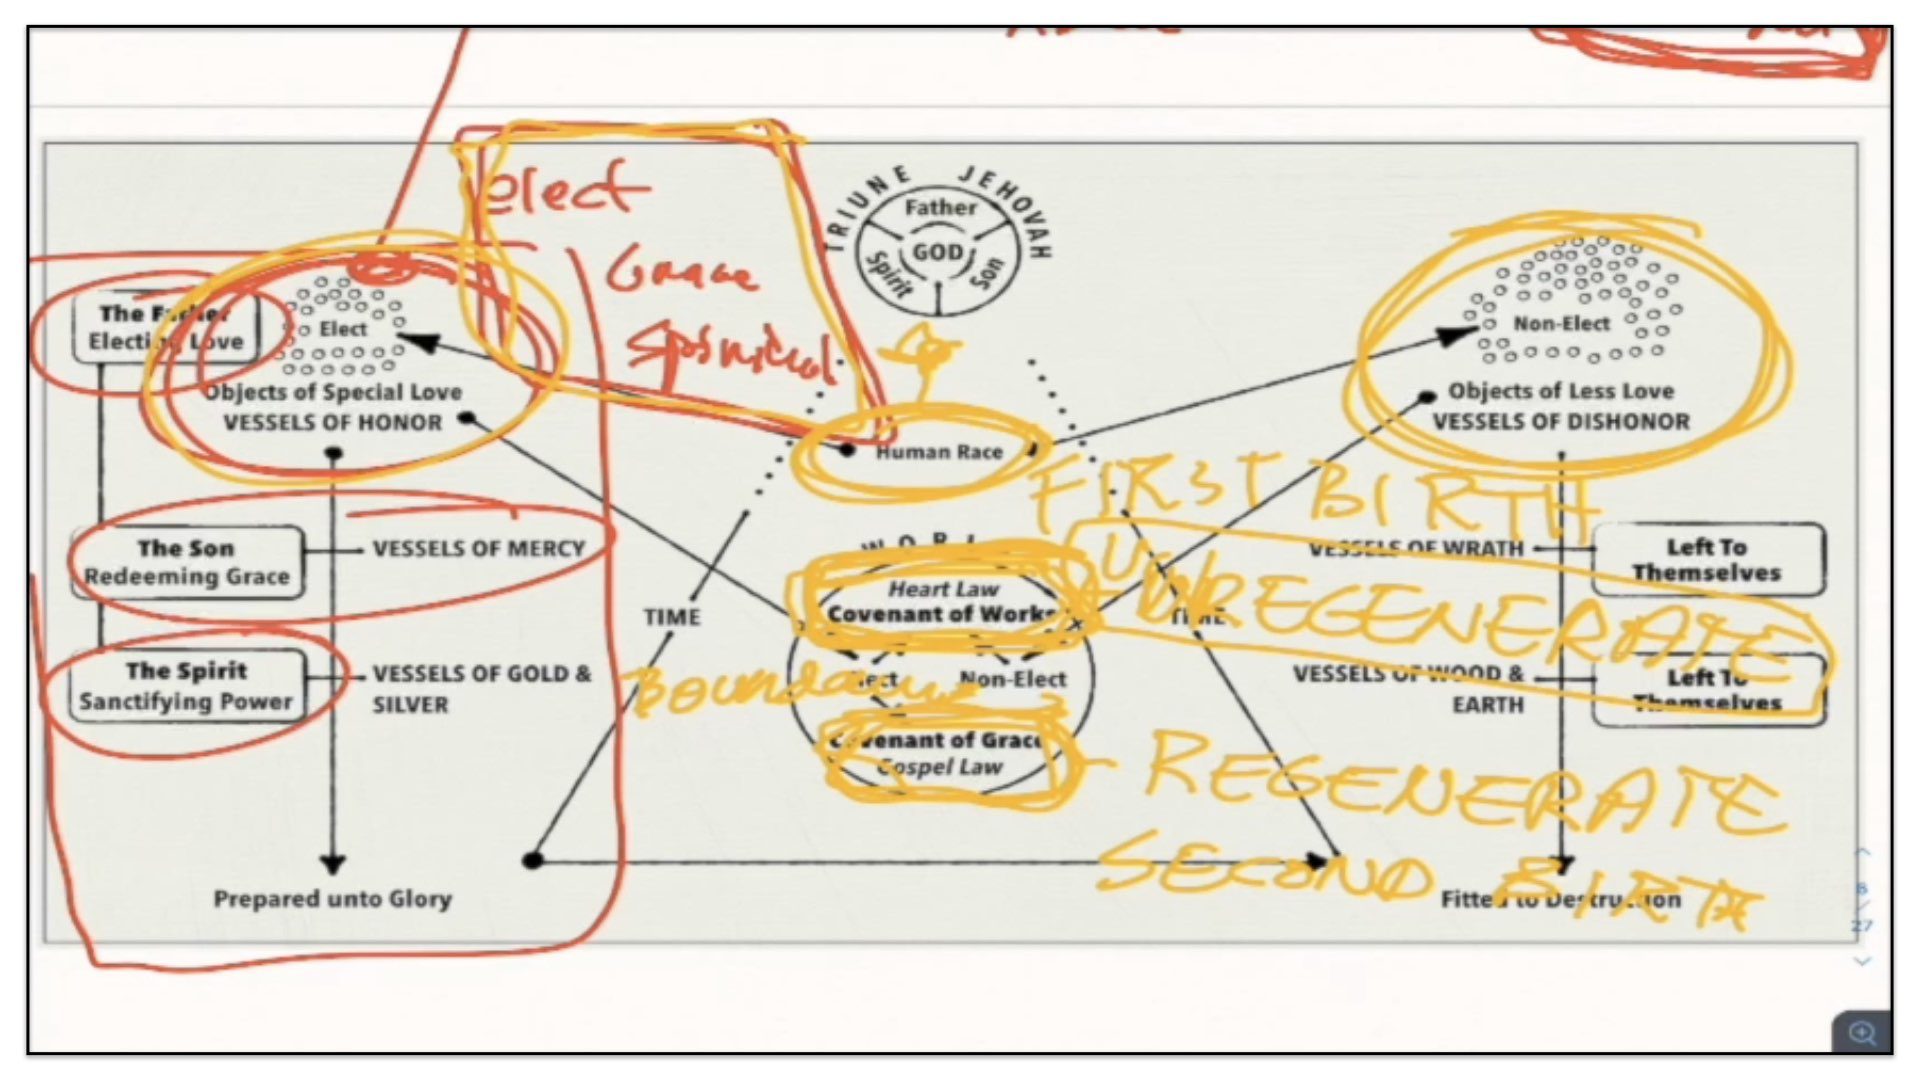 elect
Grace
Spiritual
TRIUNE JEHOVAH
Father
GOD
Spirit
Son
The Father
Electing Love
Elect
Objects of Special Love
VESSELS OF HONOR
Non-Elect
Objects of Less Love
VESSELS OF DISHONOR
Human Race
FIRST BIRTH
The Son
Redeeming Grace
VESSELS OF MERCY
VESSELS OF WRATH
Left To
Themselves
Heart Law
Covenant of Works
TIME
TIME
UNREGENERATE
The Spirit
Sanctifying Power
VESSELS OF GOLD &
SILVER
Elect
Non-Elect
VESSELS OF WOOD &
EARTH
Left To
Themselves
Covenant of Grace
Gospel Law
REGENERATE
SECOND BIRTH
Prepared unto Glory
Fitted to Destruction
8
27